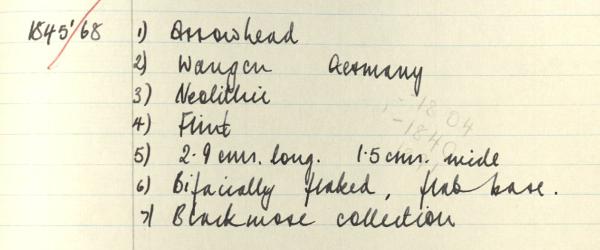 1845'/68 1) Arrowhead
2) Wangen Germany
3) Neolithic
4) Flint
5) 2.9 cms. long. 1.5 cms. wide
6) Bifacially flaked, flat base.
7) Blackmore collection
-1804
-1840